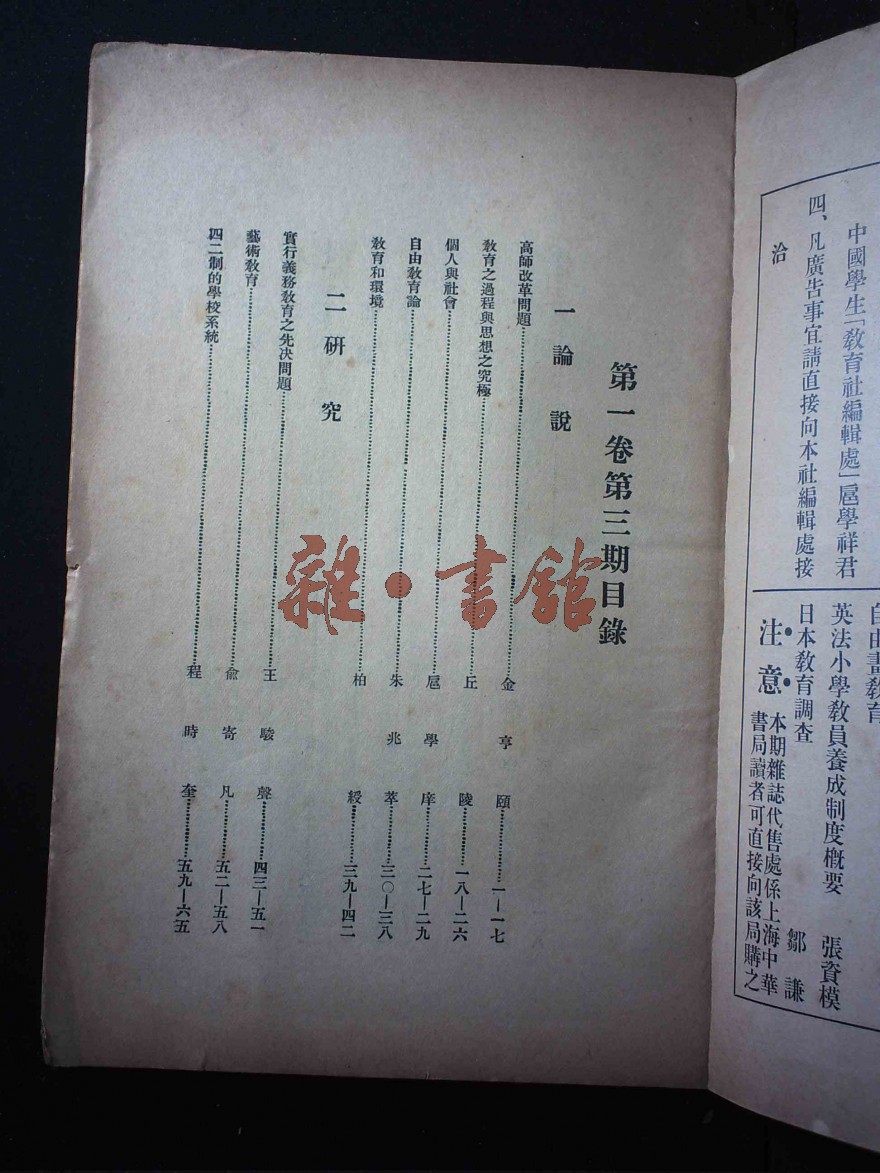 中國學生「教育社編輯處」扈學祥君
四、凡廣告事宜請直接向本社編輯處接
洽
自由畫教育
英法小學教員養成制度概要　張資模
日本教育調查　鄒謙
注意　本期雜誌代售處係上海中華
書局讀者可直接向該局購之
第一卷第三期目錄
一論說
高師改革問題……金亨頤……一—一七
教育之過程與思想之究極……丘陵……一八—二六
個人與社會……扈學庠……二七—二九
自由教育論……朱兆萃……三〇—三八
教育和環境……柏綬……三九—四二
二研究
實行義務教育之先決問題……王駿聲……四三—五一
藝術教育……俞寄凡……五二—五八
四二制的學校系統……程時奎……五九—六五
雜·書館